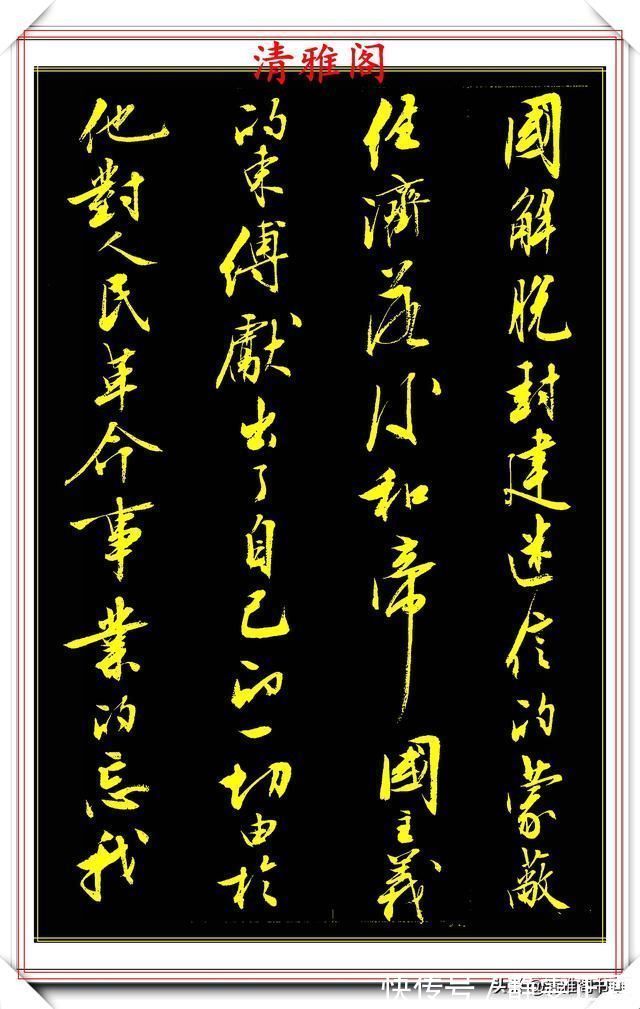 清雅阁
國解脱封建迷信的蒙蔽
經濟落後和帝國主義
的束縛獻出了自己的一切由於
他對人民革命事業的忘我
快传号
头条 @清雅阁书